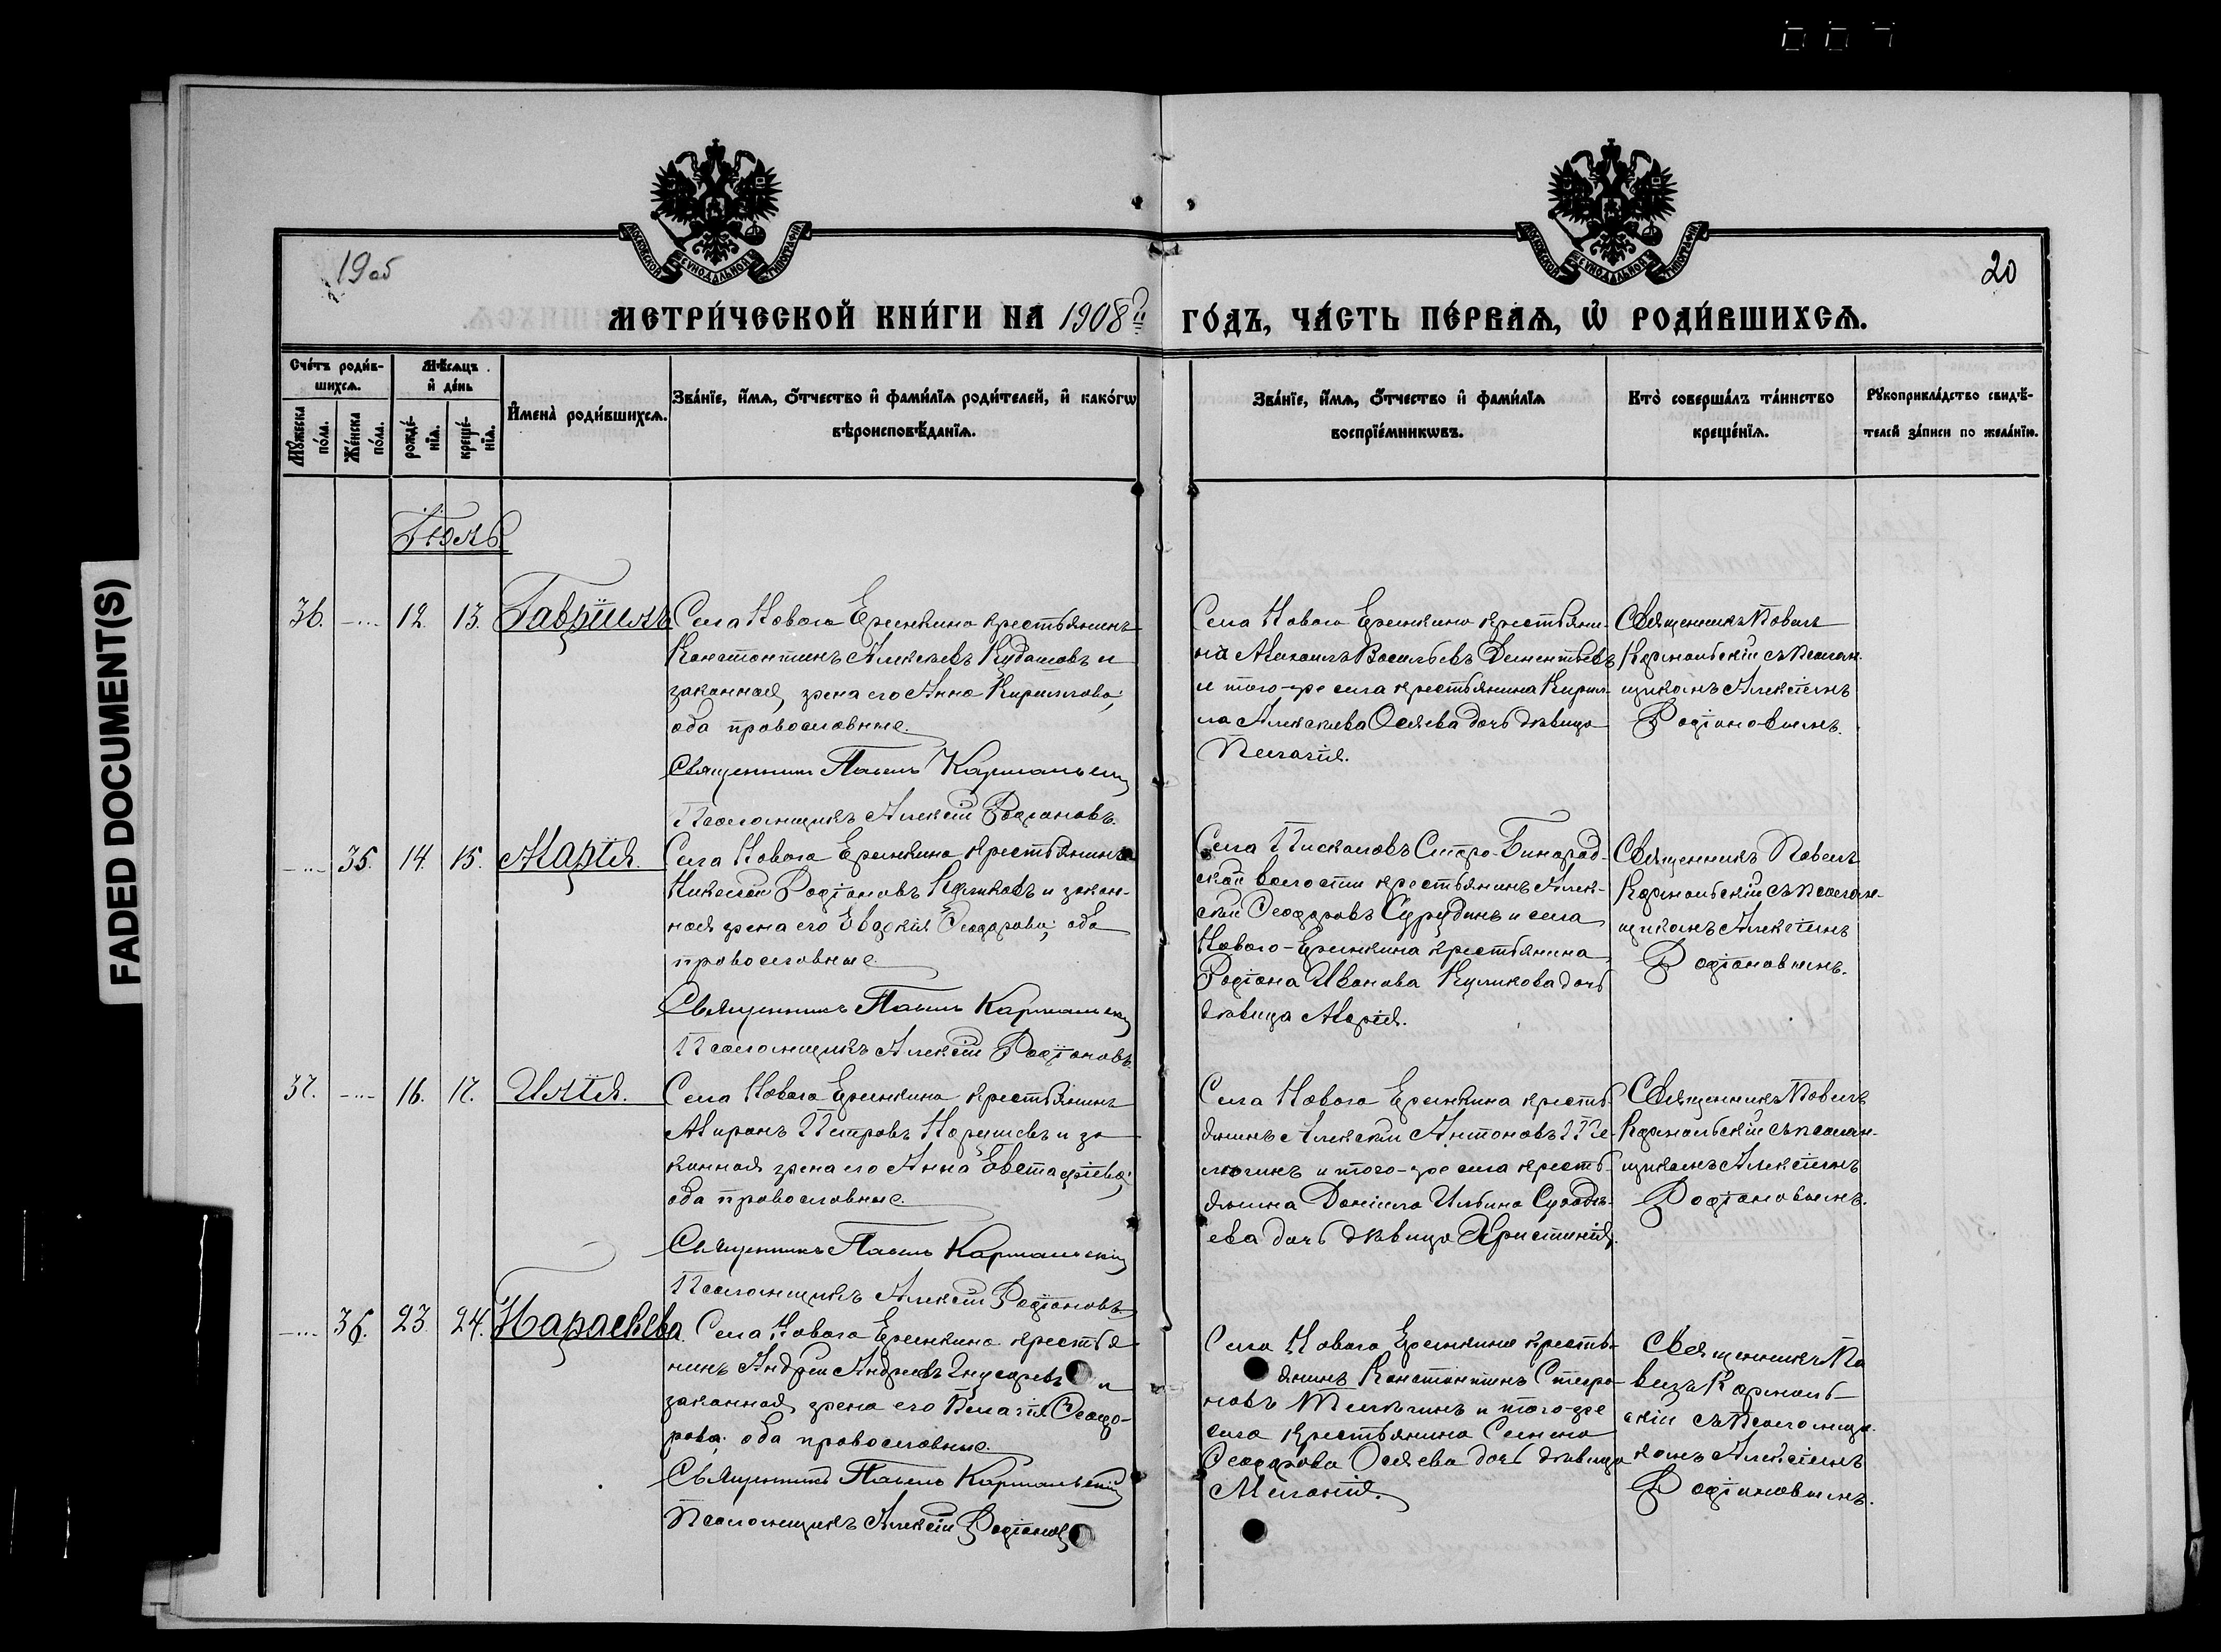 FADED DOCUMENT(S)
19 об
20
МОСКОВСКОЙ СѴНОДАЛЬНОЙ ТИПОГРАФІИ
МОСКОВСКОЙ СѴНОДАЛЬНОЙ ТИПОГРАФІИ
МЕТРИ́ЧЕСКОЙ КНИ́ГИ НА 1908й ГО́ДЪ, ЧА́СТЬ ПЕ́РВАѦ, Ѡ҆ РОДИ́ВШИХСѦ.
Сче́тъ роди́в-
шихсѧ.
Мꙋ́жеска по́ла.
Же́нска по́ла.
Мѣ́сѧцъ
и҆ де́нь
рожде́-
нїѧ.
креще́-
нїѧ.
И҆мена̀ роди́вшихсѧ.
Зва́нїе, и҆́мѧ, ѻ҆́тчество и҆ фами́лїѧ роди́телей, и҆ како́гѡ
вѣроисповѣ́данїѧ.
Зва́нїе, и҆́мѧ, ѻ҆́тчество и҆ фами́лїѧ
воспрїе́мникѡвъ.
Кто̀ соверша́лъ та́инство
креще́нїѧ.
Рꙋкоприкла́дство свидѣ́-
телей за́писи по жела́нїю.
Іюль
36. -..- 12. 13. Гавріилъ
Села Новаго Еремкина крестьянинъ
Константинъ Алексѣевъ Кудашовъ и
законная жена его Анна Кириллова;
оба православные.
Священникъ Павелъ Кармальскій
Псаломщикъ Алексій Родіоновъ.
Села Новаго Еремкина крестьяни-
на Михаилъ Васильевъ Дементьевъ
и того-же села крестьянина Кирил-
ла Алексѣева Осяева дочь дѣвица
Пелагія.
Священникъ Павелъ
Кармальскій съ псалом-
щикомъ Алексіемъ
Родіоновымъ.
-..- 35. 14. 15. Марія.
Села Новаго Еремкина крестьянинъ
Николай Родіоновъ Куликовъ и закон-
ная жена его Евдокія Ѳеодорова; оба
православные
Священникъ Павелъ Кармальскій
Псаломщикъ Алексій Родіоновъ.
Села Пискаловъ Старо-Бинарад-
ской волости крестьянинъ Алек-
сѣй Ѳеодоровъ и села
Новаго-Еремкина крестьянина
Родіона Иванова Куликова дочь
дѣвица Марія.
Священникъ Павелъ
Кармальскій съ псалом-
щикомъ Алексіемъ
Родіоновымъ.
37. -..- 16. 17. Илія.
Села Новаго Еремкина крестьянинъ
Миронъ Петровъ и за
конная жена его Анна Евстафіева;
оба православные.
Священникъ Павелъ Кармальскій
Псаломщикъ Алексій Родіоновъ.
Села Новаго Еремкина кресть-
янинъ Алексѣй Антоновъ Те-
лѣгинъ и того-же села кресть-
янина Даніила Ильина
ева дочь дѣвица Христинія.
Священникъ Павелъ
Кармальскій съ псалом-
щикомъ Алексіемъ
Родіоновымъ.
-..- 36. 23. 24. Параскева.
Села Новаго Еремкина крестья
нинъ Андрей Андреевъ и
законная жена его Пелагія Ѳеодо-
рова. оба православные.
Священникъ Павелъ Кармальскій
Псаломщикъ Алексій Родіоновъ
Села Новаго Еремкина кресть-
янинъ Константинъ Стефа-
новъ Телѣгинъ и того-же
села крестьянина Семена
Ѳеодорова Осяева дочь дѣвица
Меланія.
Священникъ Па
велъ Кармаль
скій съ Псаломщи-
комъ Алексіемъ
Родіоновымъ.